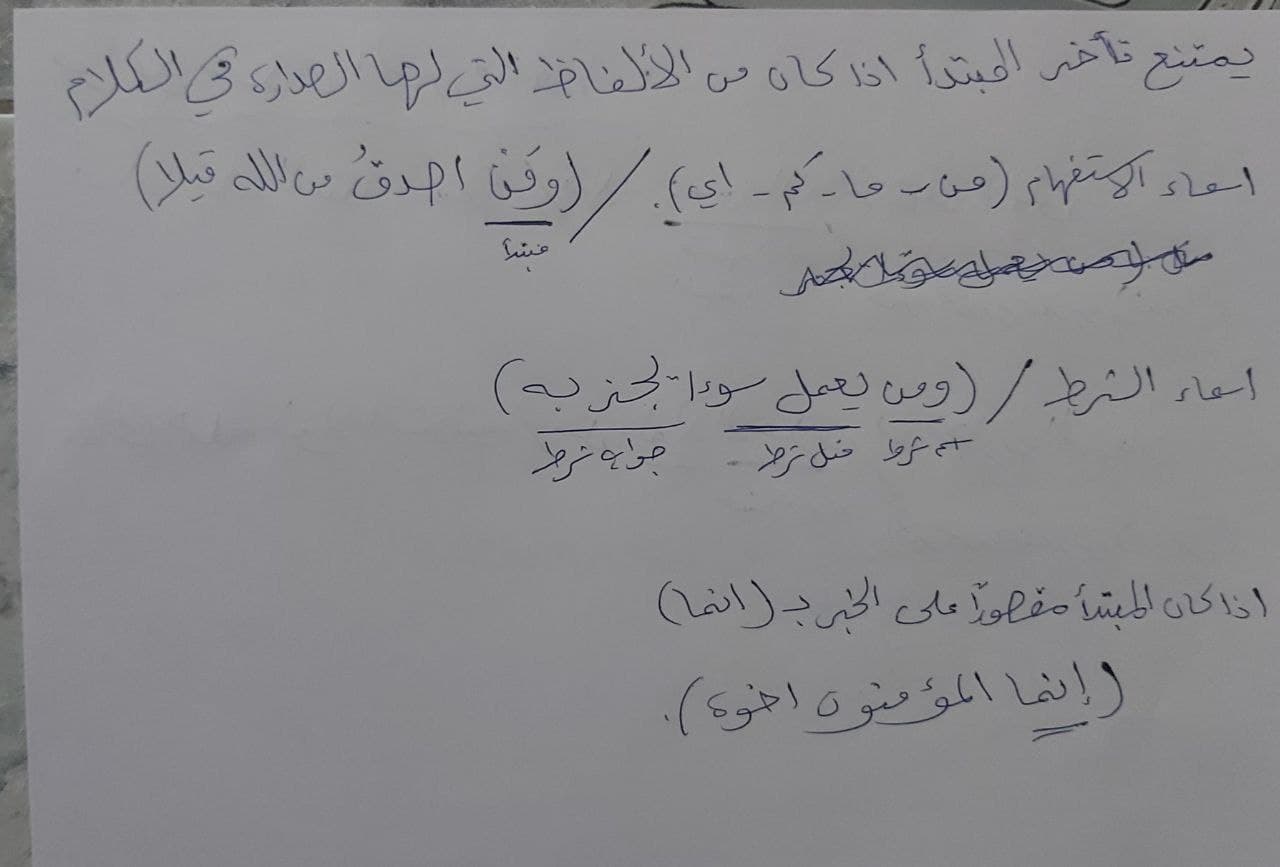 يمتنع تأخر المبتدأ اذا كان من الألفاظ التي لها الصدارة في الكلام
اسماء الاستفهام (من - ما - كم - اي). / (وَمَنْ اصدقُ من الله قيلا)
مبتدأ
اسماء الشرط / (ومن يعمل سوءا يجز به)
اسم شرط فعل شرط جواب شرط
اذا كان المبتدأ مقصوراً على الخبر بـ (انما)
(إنما المؤمنون اخوة).